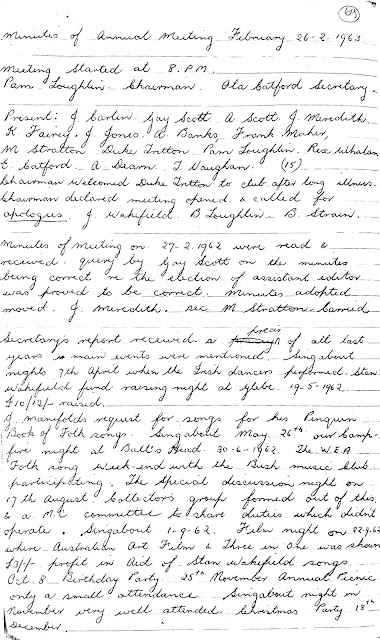 69
Minutes of Annual Meeting February 26-2-1963
Meeting Started at 8. P.M.
Pam Loughlin Chairman. Ola Catford Secretary.
Present: J Carlin Gay Scott A Scott J. Meredith.
K. Fairey. J Jones. A Banks, Frank Maher,
M Stratton Duke Tritton Pam Loughlin. Rex Whalan
O. Catford. A Dearn. T Vaughan. (15)
Chairman welcomed Duke Tritton to club after long illness.
Chairman declared meeting opened & called for
apologies. J. Wakefield. B Loughlin. B Strain.
Minutes of Meeting on 27-2-1962 were read &
received. query by Gay Scott on the minutes
being correct re the election of assistant editor
was proved to be correct. Minutes adopted
moved. J. Meredith. sec M Stratton. Carried
Secretary's report received. a precis of all last
years main events were mentioned. Singabout
nights 7th April when the Irish dancers performed. Stan
Wakefield fund raising night at Glebe. 19-5-1962
£10/12/- raised.
J. Manifolds request for songs for his Penguin
Book of Folk songs. Singabout May 26th our Camp-
fire night at Ball's Head. 30-6-1962. The W.E.A
Folk song Week-end with the Bush music Club
participating. The Special discussion night on
17th August Collector's group formed out of this
& a M.C committee to share duties which didn't
operate. Singabout 1-9-62. Film night on 22-9-62
where Australian Art Film & Three in One was shown
£3/1/- profit in Aid of Stan Wakefield songs.
Oct. 8 Birthday Party. 25th November Annual Picnic
only a small attendance. Singabout night in
November very well attended. Christmas Party 18th
December.